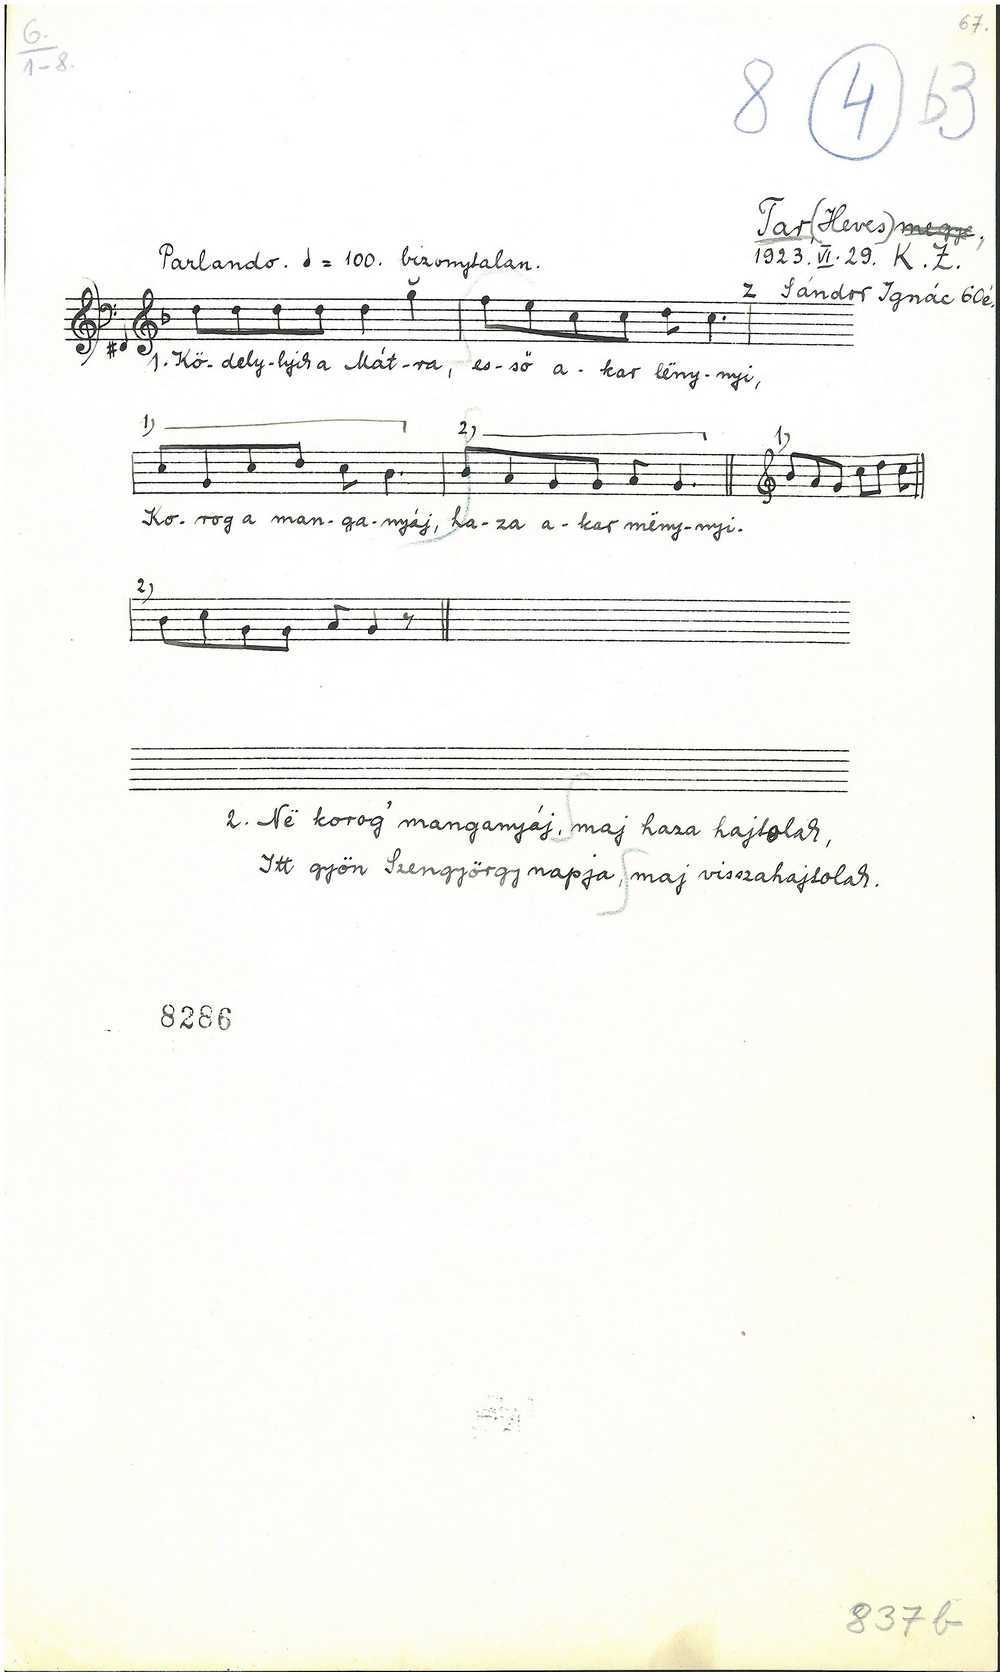 6.
1-8.
67.
8 4 b3
Tar (Heves) megye,
1923. VI. 29. K. Z.
Sándor Ignác 60é.
Parlando. = 100. bizonytalan.
1. Kö-dely-lyik a Mát-ra, es-ső a-kar lëny-nyi,
1) 2) 1)
Ko-rog a man-ga-nyáj, ha-za a-kar mëny-nyi.
2)
2. Në korog' manganyáj, maj haza hajtolak,
Itt gyön Szengyörgy napja, maj visszahajtolak.
8286
837 b